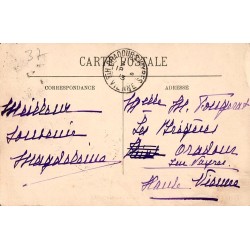 37
CARTE POSTALE
CORRESPONDANCE
ADRESSE
Meilleur
Souvenir
Magdeleine
Melle M.
Les
Oradour
sur Vayres
Haute Vienne